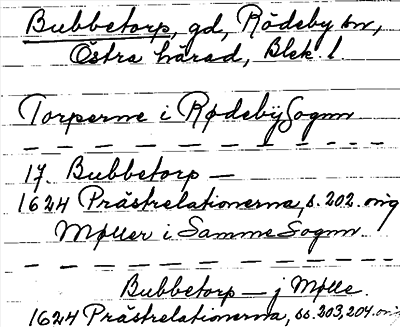 Bubbetorp, gd, Rödeby sn,
Östra härad, Blek l.
Torperne i Rødeby Sognn
17. Bubbetorp —
1624 Prästrelationerna, s. 202. orig
Møller i Samme Sognn
Bubbetorp — j Mølle.
1624 Prästrelationerna, ss. 203, 204. orig